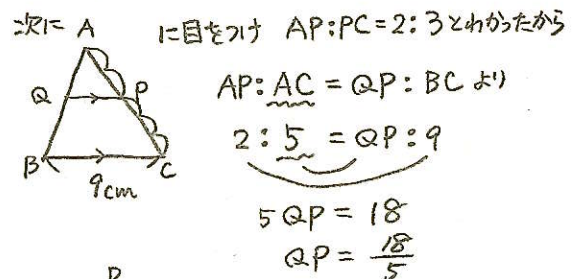 次に A に目をつけ AP:PC=2:3とわかったから
Q P
B C
9cm
AP:AC = QP:BC より
2:5 = QP:9
5QP = 18
QP = 18/5
P